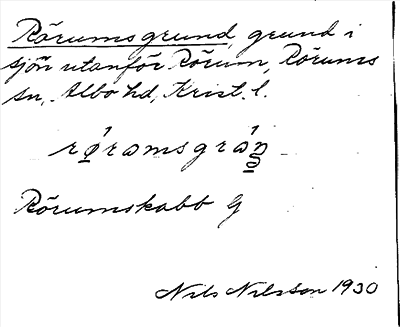 Rörumsgrund, grund i
sjön utanför Rörum, Rörums
sn, Albo hd, Krist. l.
Rörumskabb G
Nils Nilsson 1930